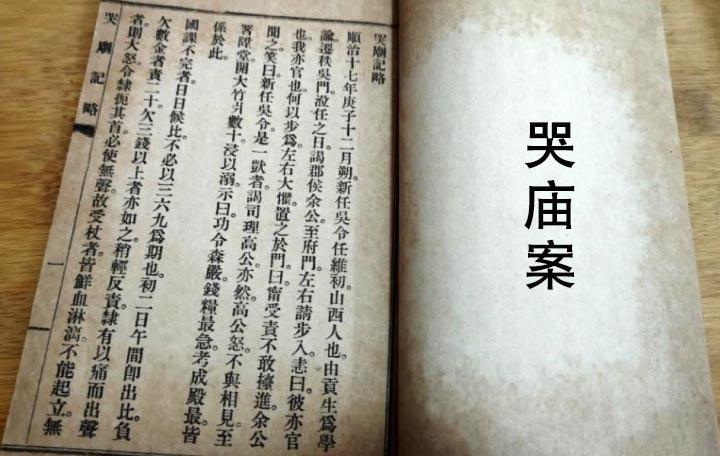 哭庙案
哭廟記略
順治十七年庚子十二月朔。新任吳令任維初山西人也。由貢生爲學
諭。遷秩吳門。涖任之日。謁郡侯余公。至府門。左右請步入。恚曰。彼亦官
也。我亦官也。何以步爲。左右大懼。置之於門。曰。甯受責不敢擡進。余公
聞之笑曰。新任吳令是一獃者。謁司理高公亦然。高公怒不與相見。至
署陞堂。開大竹片數十。浸以溺。示曰。功令森嚴。錢糧最急。考成殿最。皆
係於此。
國課不完者。日日候比。不必以三六九爲期也。初二日午間卽出比。負
欠數金者責二十。欠三錢以上者亦如之。稍輕反責隸。有以痛而出聲
者則大怒。令隸扼其首。必使無聲。故受杖者皆鮮血淋漓。不能起立。無
哭廟記略
一